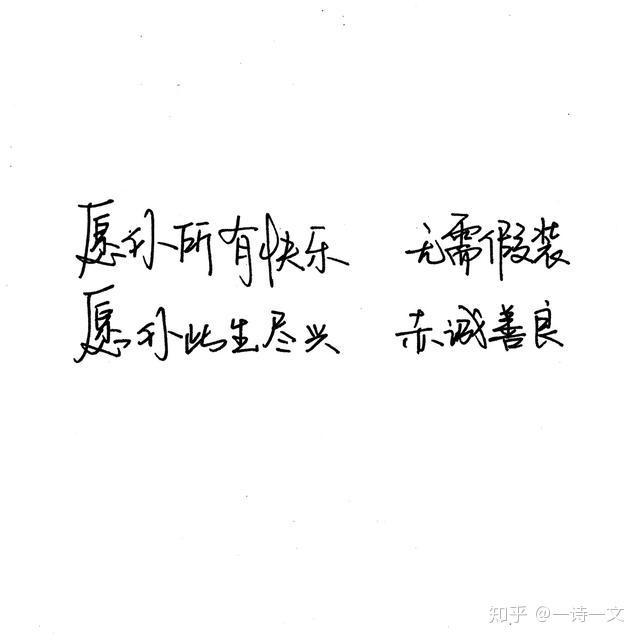 愿你所有快乐 无需假装
愿你此生尽兴 赤诚善良
知乎 @一诗一文